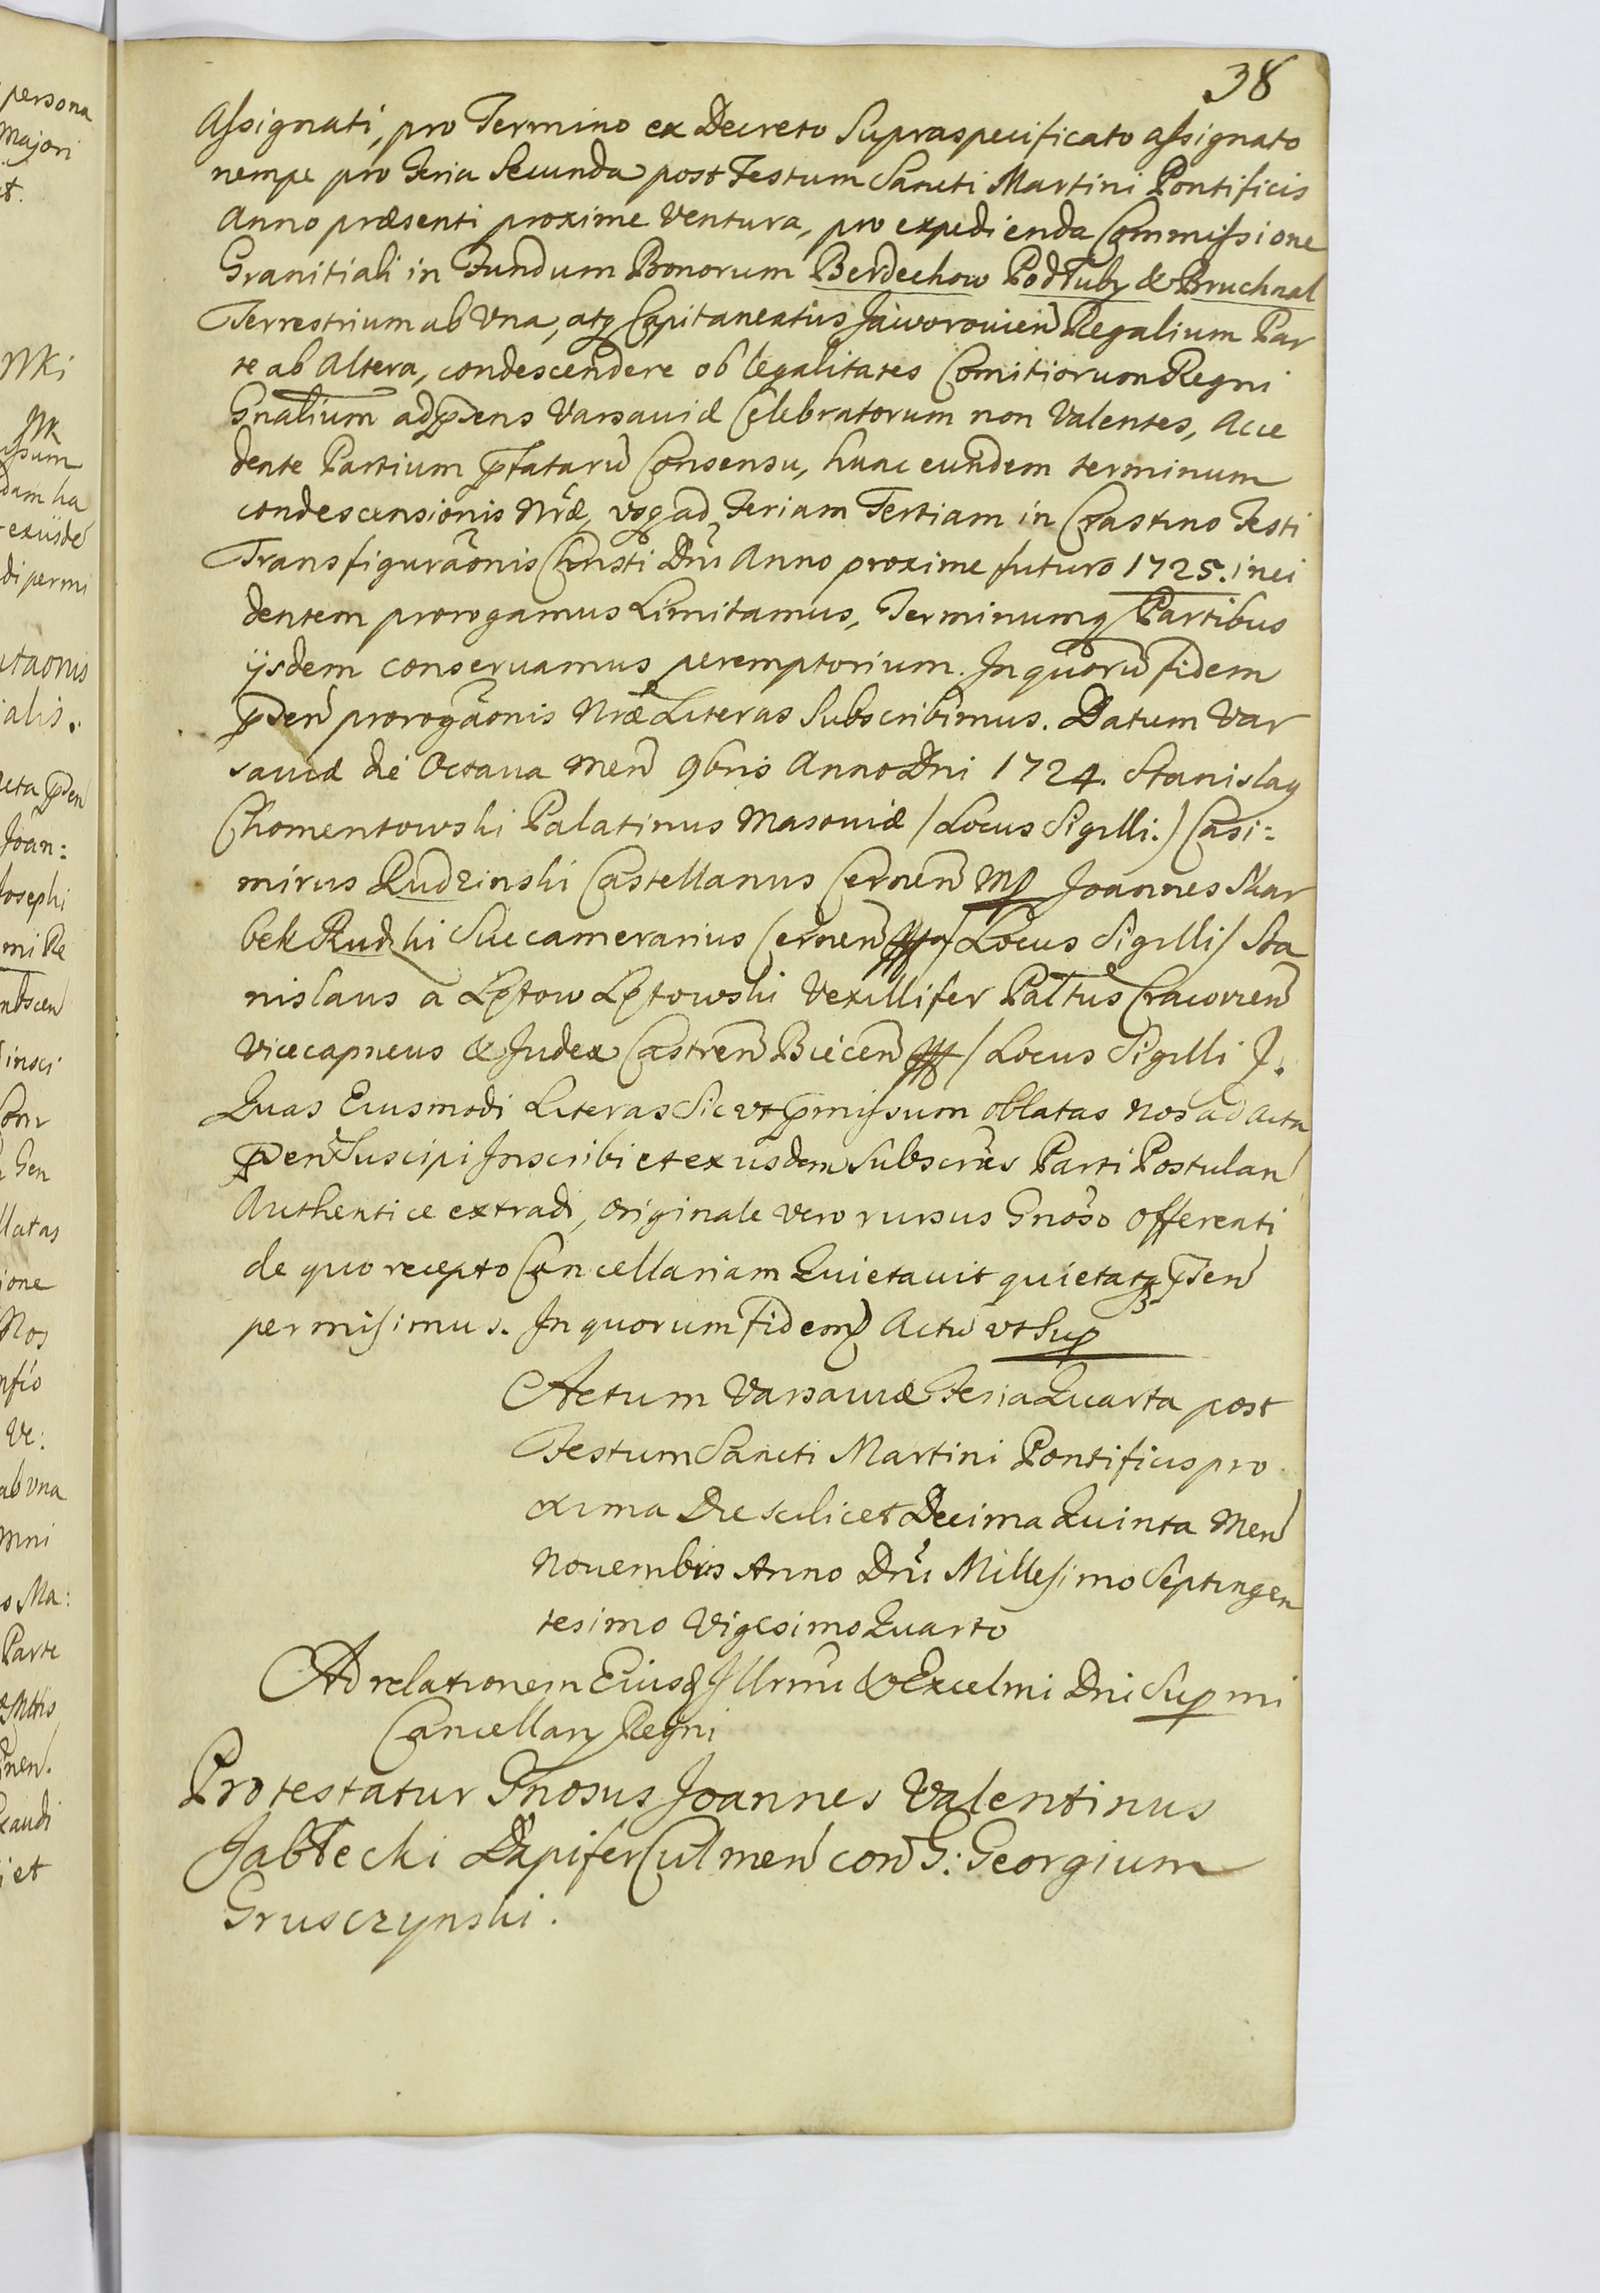 38
Assignati, pro Termino ex Decreto Supraspecificato assignato
nempe pro Feria Secunda post Festum Sancti Martini Pontificis
Anno præsenti proxime Ventura, pro expedienda Commissione
Granitiali in Fundum Bonorum Berdechow Podłuby & Bruchnal
Terrestrium ab Una, atq Capitaneatus Jaworovien Regalium Par
te ab Altera, condescendere ob legalitates Comitiorum Regni
Gnalium ad pñsens Varsaviæ Celebratorum non Valentes, Acce
dente Partium pñtataru Consensu, hunc eundem terminum
condescensionis Nræ, vsq ad Feriam Tertiam in Crastino Festi
Transfiguraonis Christi Dni Anno proxime futuro 1725. inci
dentem prorogamus Limitamus, Terminumq Partibus
ijsdem conservamus peremptorium. In quoru fidem
pñsen prorogaonis Nræ Literas Subscribimus. Datum Var
saviæ die Octava Men 9bris Anno Dni 1724. Stanislaq
Chomentowski Palatinus Masoviæ /Locus Sigilli./ Casi=
mirus Rudzinski Castellanus Cernen mp Joannes Skar
bek Rudzki Succamerarius Cernen /Locus Sigilli/ Sta
nislaus a Lętow Lętowski Vexillifer Palłtus Cracovien
Vicecapneus & Judex Castren Biecen /Locus Sigilli /.
Quas Eiusmodi Literas Sic vt pmissum oblatas Nos ad Acta
pñsen Suscipi Inscribi et ex iisdem Subscriës Parti Postulan
Authentice extradi, Originale vero rursus Gnoso Offerenti
de quo recepto Cancellariam Quietavit quietatq pñsen
permisimus. In quorum fidem Actu vt Sup
Actum Varsaviæ Feria Quarta post
Festum Sancti Martini Pontificis pro
xima Die scilicet Decima Quinta Men
Novembris Anno Dni Millesimo Septingen
tesimo Vigesimo Quarto
Ad relationem Eiusd Illrmi & Excelmi Dni Sup mi
Cancellarij Regni
Protestatur Gnosus Joannes Valentinus
Jabłecki Dapifer Culmen con G: Georgium
Grusczynski.